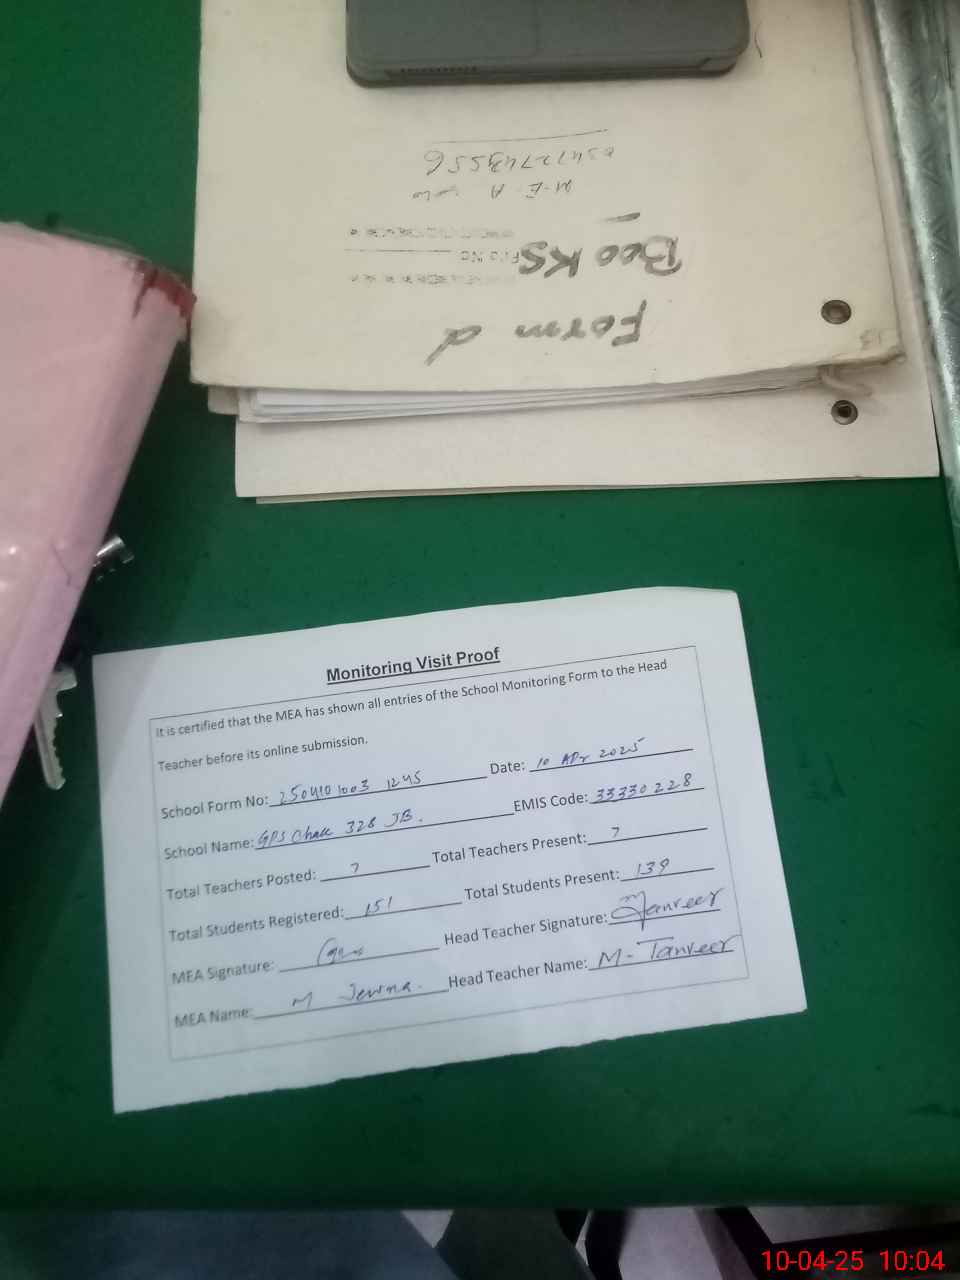 03472743556
M.E.A
Books
File No
Form d
Monitoring Visit Proof
It is certified that the MEA has shown all entries of the School Monitoring Form to the Head
Teacher before its online submission.
School Form No: 250410 1003 1245 Date: 10 Apr 2025
School Name: GPS Chak 328 JB. EMIS Code: 33330228
Total Teachers Posted: 7 Total Teachers Present: 7
Total Students Registered: 151 Total Students Present: 139
MEA Signature: Head Teacher Signature: Tanveer
MEA Name: M Head Teacher Name: M. Tanveer
10-04-25 10:04